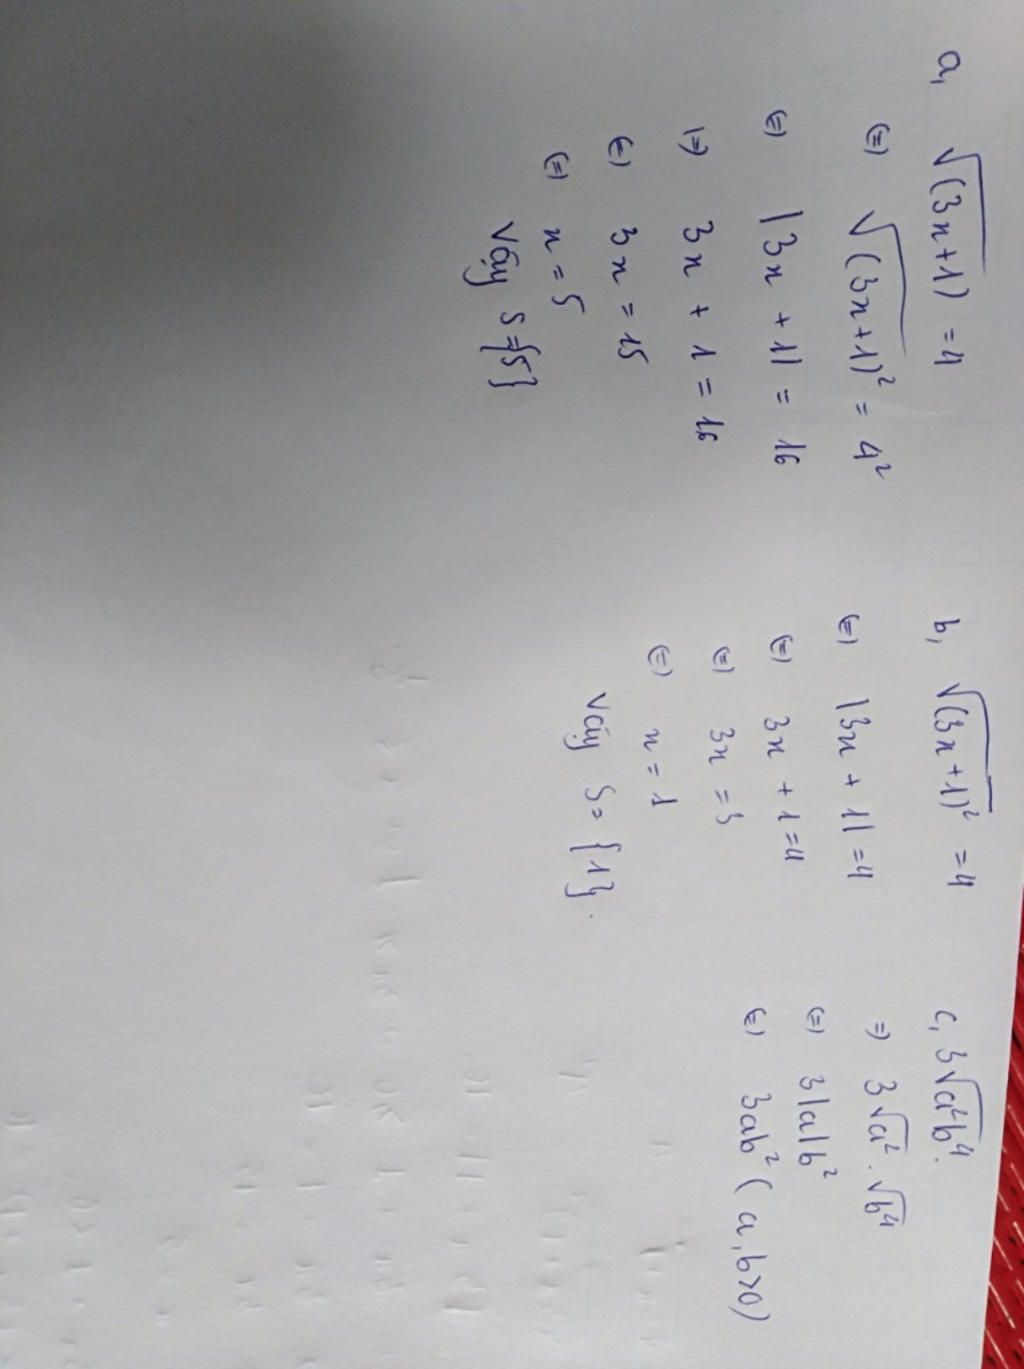 a, √(3x+1) = 4
(=) √(3x+1)² = 4²
(=) |3x + 1| = 16
(=) 3x + 1 = 16
(=) 3x = 15
(=) x = 5
Vậy S={5}
b, √(3x+1)² = 4
(=) |3x + 1| = 4
(=) 3x + 1 = 4
(=) 3x = 3
(=) x = 1
Vậy S = {1}.
c, 3√a²b⁴.
=) 3√a² . √b⁴
(=) 3|a|b²
(=) 3ab² (a, b>0)